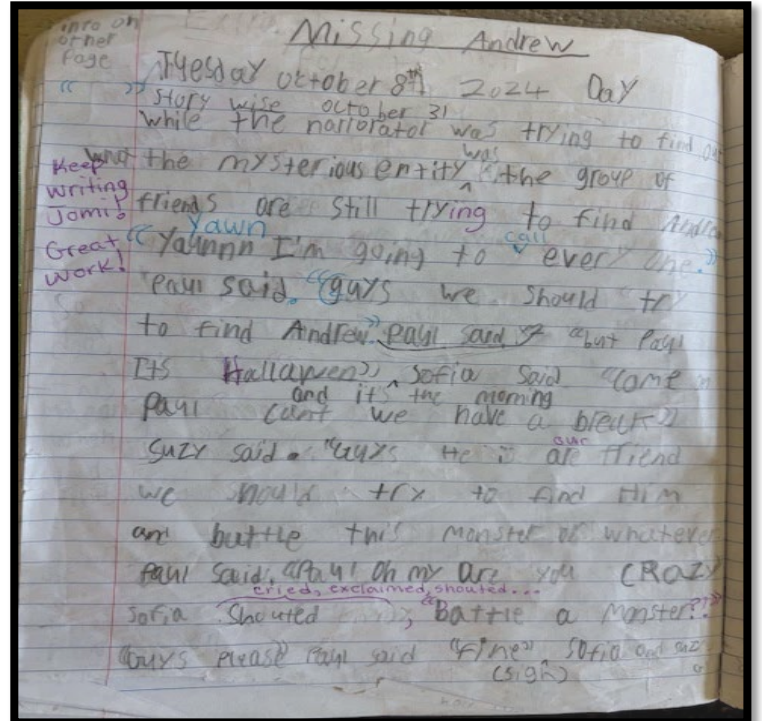 Missing Andrew
info on other Page
Tuesday october 8th 2024 Day
" " story wise october 31
While the norrorator was trying to find out
what the mysterious entity was ^ the group of
friends are still trying to find Andrew
Keep writing Jomi! Great work!
Yawn
"Yaunnn I'm going to call every one."
Paul said. "guys we should try
to find Andrew" Paul said "but Paul
Its Hallawen" Sofia said "come on
and it's the morning
Paul cant we have a break"
Suzy said. "Guys He is our are friend
we should try to find Him
and battle this monster or whatever
Paul said, "Paul oh my are you CRAZY
cried, exclaimed, shouted...
Sofia Shouted, "Battle a monster??"
"Guys please" Paul said "fine" Sofia and suzy
(sigh)